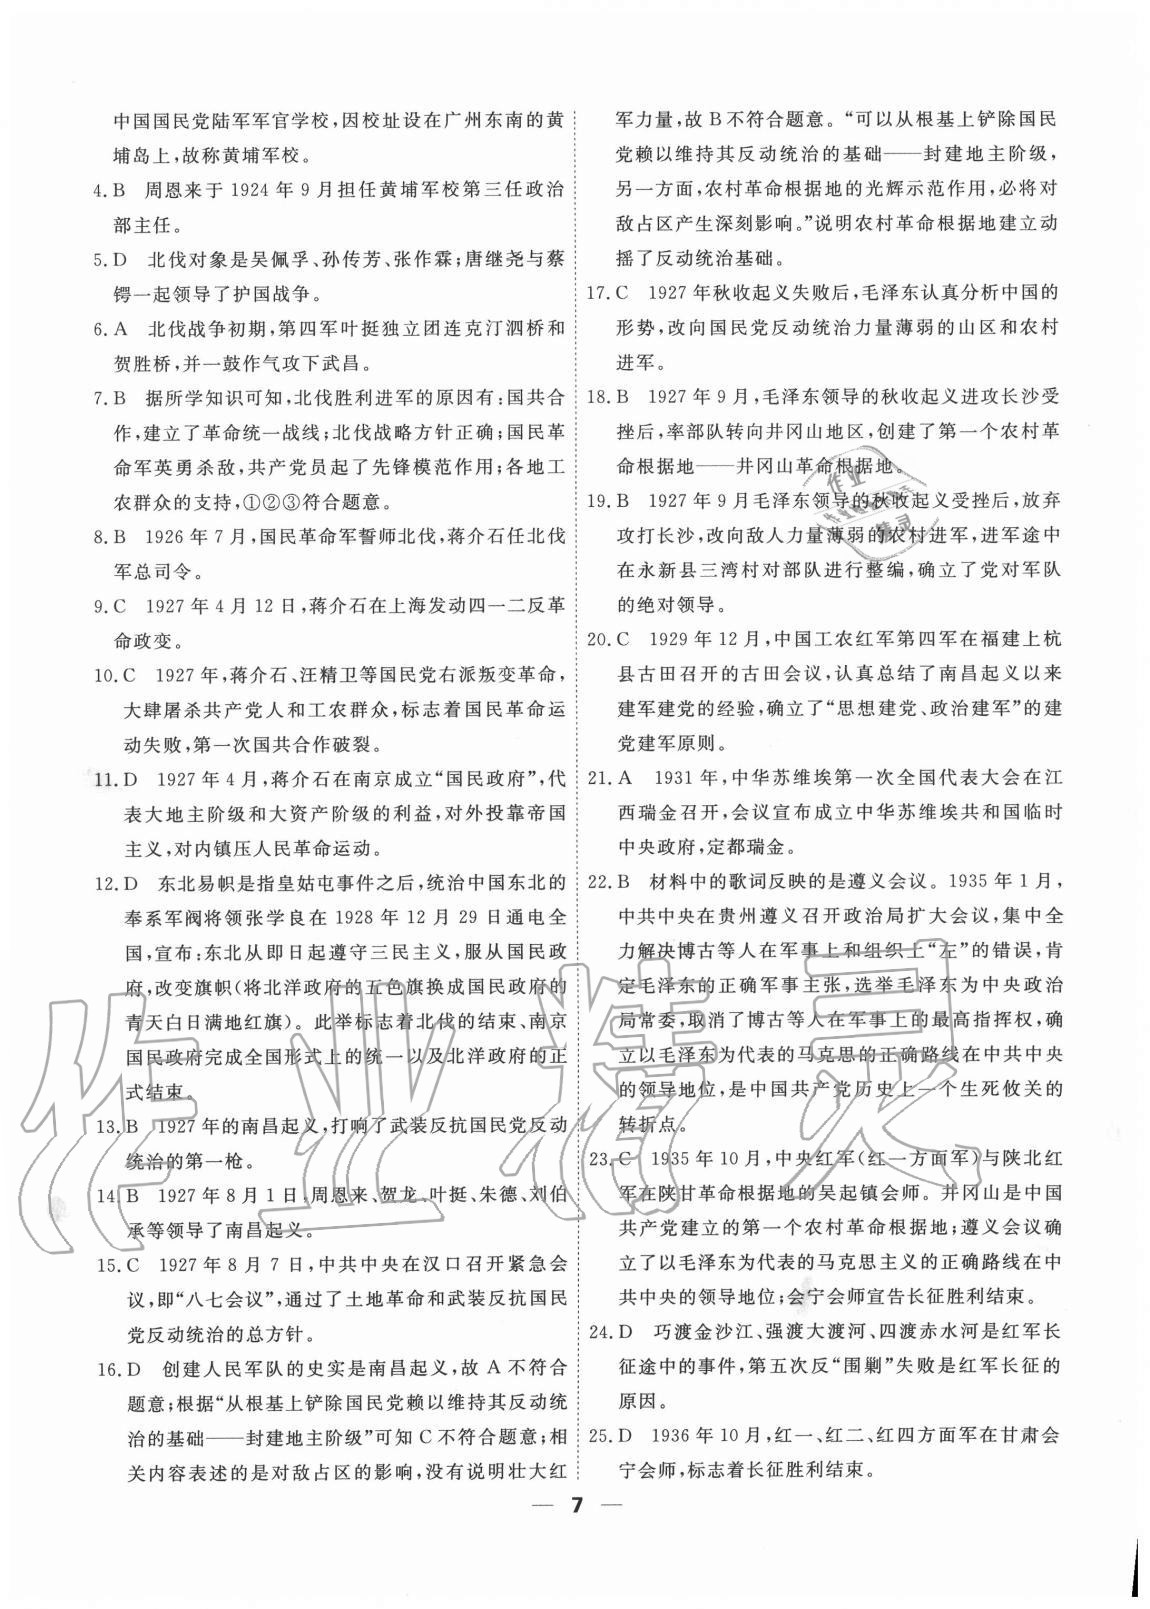 中国国民党陆军军官学校，因校址设在广州东南的黄
埔岛上，故称黄埔军校。
4. B　周恩来于 1924 年 9 月担任黄埔军校第三任政治
部主任。
5. D　北伐对象是吴佩孚、孙传芳、张作霖；唐继尧与蔡
锷一起领导了护国战争。
6. A　北伐战争初期，第四军叶挺独立团连克汀泗桥和
贺胜桥，并一鼓作气攻下武昌。
7. B　据所学知识可知，北伐胜利进军的原因有：国共合
作，建立了革命统一战线；北伐战略方针正确；国民革
命军英勇杀敌，共产党员起了先锋模范作用；各地工
农群众的支持，①②③符合题意。
8. B　1926 年 7 月，国民革命军誓师北伐，蒋介石任北伐
军总司令。
9. C　1927 年 4 月 12 日，蒋介石在上海发动四一二反革
命政变。
10. C　1927 年，蒋介石、汪精卫等国民党右派叛变革命，
大肆屠杀共产党人和工农群众，标志着国民革命运
动失败，第一次国共合作破裂。
11. D　1927 年 4 月，蒋介石在南京成立“国民政府”，代
表大地主阶级和大资产阶级的利益，对外投靠帝国
主义，对内镇压人民革命运动。
12. D　东北易帜是指皇姑屯事件之后，统治中国东北的
奉系军阀将领张学良在 1928 年 12 月 29 日通电全
国，宣布：东北从即日起遵守三民主义，服从国民政
府，改变旗帜（将北洋政府的五色旗换成国民政府的
青天白日满地红旗）。此举标志着北伐的结束、南京
国民政府完成全国形式上的统一以及北洋政府的正
式结束。
13. B　1927 年的南昌起义，打响了武装反抗国民党反动
统治的第一枪。
14. B　1927 年 8 月 1 日，周恩来、贺龙、叶挺、朱德、刘伯
承等领导了南昌起义。
15. C　1927 年 8 月 7 日，中共中央在汉口召开紧急会
议，即“八七会议”，通过了土地革命和武装反抗国民
党反动统治的总方针。
16. D　创建人民军队的史实是南昌起义，故 A 不符合
题意；根据“从根基上铲除国民党赖以维持其反动统
治的基础——封建地主阶级”可知 C 不符合题意；相
关内容表述的是对敌占区的影响，没有说明壮大红
军力量，故 B 不符合题意。“可以从根基上铲除国民
党赖以维持其反动统治的基础——封建地主阶级，
另一方面，农村革命根据地的光辉示范作用，必将对
敌占区产生深刻影响。”说明农村革命根据地建立动
摇了反动统治基础。
17. C　1927 年秋收起义失败后，毛泽东认真分析中国的
形势，改向国民党反动统治力量薄弱的山区和农村
进军。
18. B　1927 年 9 月，毛泽东领导的秋收起义进攻长沙受
挫后，率部队转向井冈山地区，创建了第一个农村革
命根据地——井冈山革命根据地。
19. B　1927 年 9 月毛泽东领导的秋收起义受挫后，放弃
攻打长沙，改向敌人力量薄弱的农村进军，进军途中
在永新县三湾村对部队进行整编，确立了党对军队
的绝对领导。
20. C　1929 年 12 月，中国工农红军第四军在福建上杭
县古田召开的古田会议，认真总结了南昌起义以来
建军建党的经验，确立了“思想建党、政治建军”的建
党建军原则。
21. A　1931 年，中华苏维埃第一次全国代表大会在江
西瑞金召开，会议宣布成立中华苏维埃共和国临时
中央政府，定都瑞金。
22. B　材料中的歌词反映的是遵义会议。1935 年 1 月，
中共中央在贵州遵义召开政治局扩大会议，集中全
力解决博古等人在军事上和组织上“左”的错误，肯
定毛泽东的正确军事主张，选举毛泽东为中央政治
局常委，取消了博古等人在军事上的最高指挥权，确
立以毛泽东为代表的马克思的正确路线在中共中央
的领导地位，是中国共产党历史上一个生死攸关的
转折点。
23. C　1935 年 10 月，中央红军（红一方面军）与陕北红
军在陕甘革命根据地的吴起镇会师。井冈山是中国
共产党建立的第一个农村革命根据地；遵义会议确
立了以毛泽东为代表的马克思主义的正确路线在中
共中央的领导地位；会宁会师宣告长征胜利结束。
24. D　巧渡金沙江、强渡大渡河、四渡赤水河是红军长
征途中的事件，第五次反“围剿”失败是红军长征的
原因。
25. D　1936 年 10 月，红一、红二、红四方面军在甘肃会
宁会师，标志着长征胜利结束。
— 7 —
作业精灵
作业
精灵